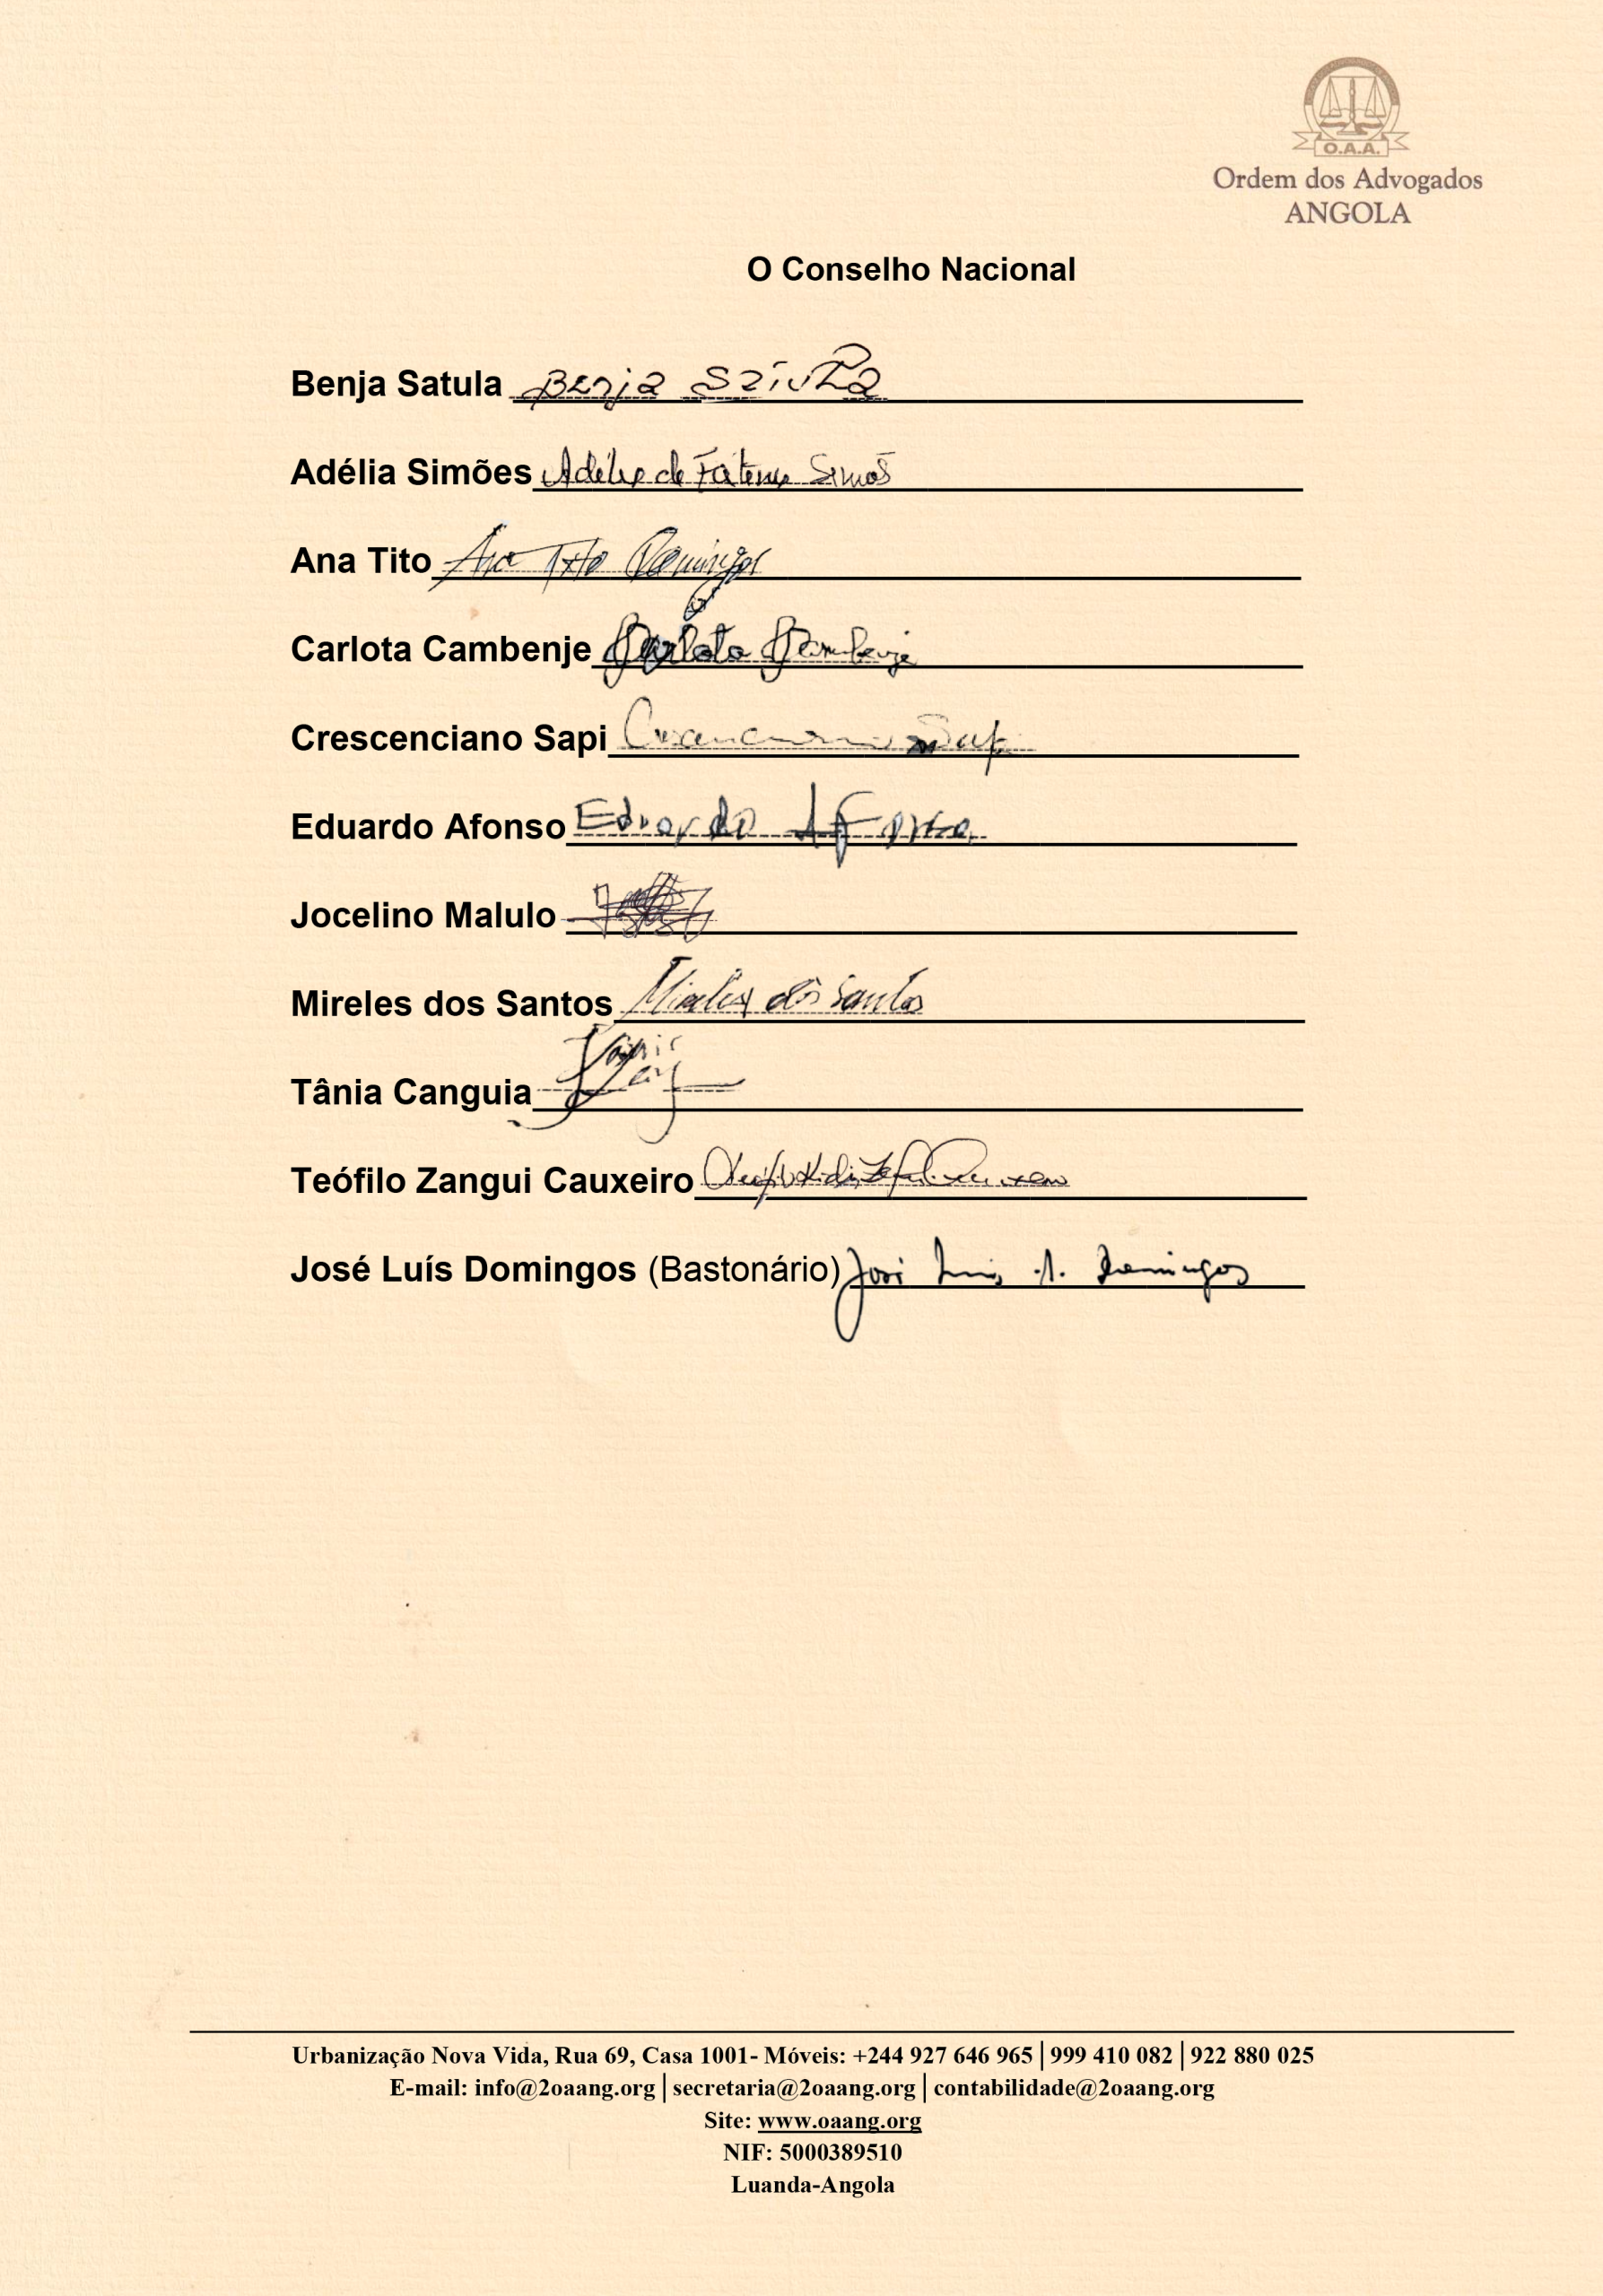 O.A.A.
Ordem dos Advogados
ANGOLA
O Conselho Nacional
Benja Satula Benja Satula
Adélia Simões Adélia de Fátima Simões
Ana Tito Ana Tito Domingos
Carlota Cambenje Carlota Cambenje
Crescenciano Sapi Crescenciano Sapi
Eduardo Afonso Eduardo Afonso
Jocelino Malulo
Mireles dos Santos Mireles dos Santos
Tânia Canguia Tânia
Teófilo Zangui Cauxeiro
José Luís Domingos (Bastonário) José Luís A. Domingos
Urbanização Nova Vida, Rua 69, Casa 1001- Móveis: +244 927 646 965|999 410 082|922 880 025
E-mail: info@2oaang.org|secretaria@2oaang.org|contabilidade@2oaang.org
Site: www.oaang.org
NIF: 5000389510
Luanda-Angola